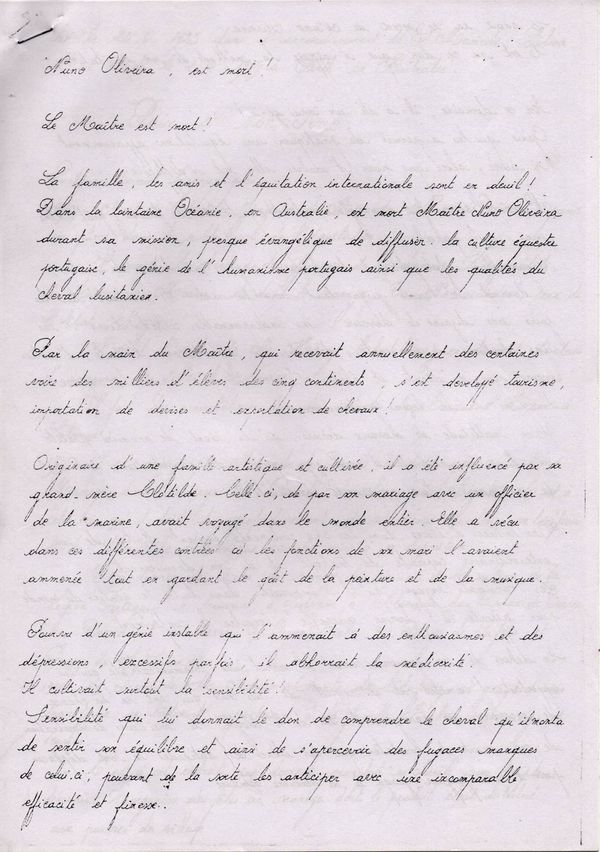 Nuno Oliveira, est mort!
Le Maître est mort!
La famille, les amis et l'équitation internationale sont en deuil!
Dans la lointaine Océanie, en Australie, est mort Maître Nuno Oliveira
durant sa mission, presque évangélique de diffuser la culture équestre
portugaise, le génie de l'humanisme portugais ainsi que les qualités du
cheval lusitanien.
Par la main du Maître, qui recevait annuellement des centaines
voire des milliers d'élèves des cinq continents, s'est developpé tourisme,
importation de devises et exportation de chevaux!
Originaire d'une famille artistique et cultivée, il a été influencé par sa
grand-mère Clotilde. Celle-ci, de par son mariage avec un officier
de la marine, avait voyagé dans le monde entier. Elle a vécu
dans ces différentes contrées où les fonctions de son mari l'avaient
ammenée tout en gardant le goût de la peinture et de la musique.
Pourvu d'un génie instable qui l'ammenait à des enthousiasmes et des
dépressions, excessifs parfois, il abhorrait la médiocrité.
Il cultivait surtout la sensibilité!
Sensibilité qui lui donnait le don de comprendre le cheval qu'il monta
de sentir son équilibre et ainsi de s'apercevoir des fugaces manques
de celui-ci, pouvant de la sorte les anticiper avec une incomparable
efficacité et finesse..